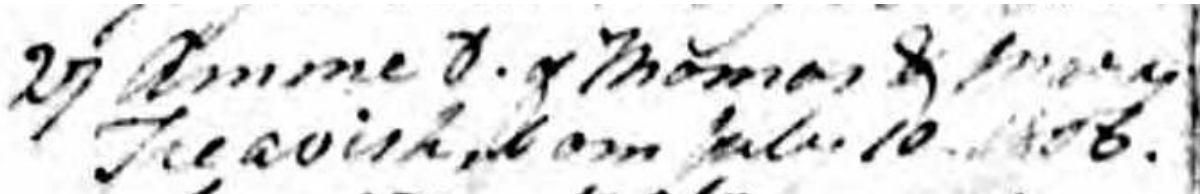 27 Amme D. of Thomas & Mary
Treavish, born July 10. 1806.